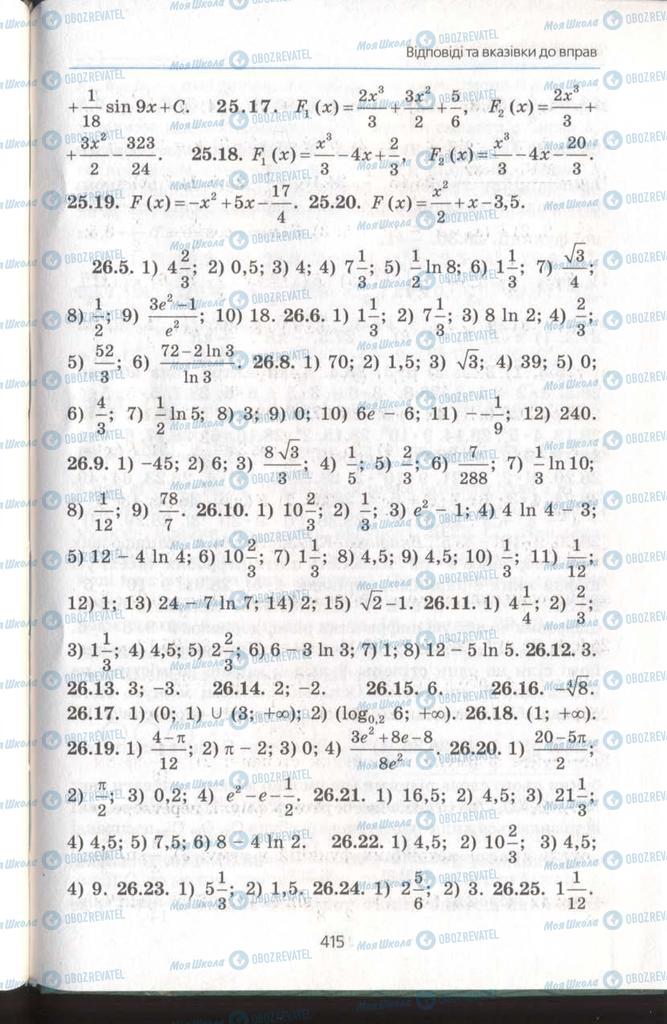 Відповіді та вказівки до вправ
+ 1/18 sin 9x + C. 25.17. F₁ (x) = 2x³/3 + 3x²/2 + 5/6, F₂ (x) = 2x³/3 +
+ 3x²/2 − 323/24. 25.18. F₁ (x) = x³/3 − 4x + 2/3, F₂ (x) = x³/3 − 4x − 20/3.
25.19. F (x) = −x² + 5x − 17/4. 25.20. F (x) = x²/2 + x − 3,5.
26.5. 1) 4 2/3; 2) 0,5; 3) 4; 4) 7 1/3; 5) 1/2 ln 8; 6) 1 1/3; 7) √3/4;
8) 1/2; 9) (3e² − 1)/e²; 10) 18. 26.6. 1) 1 1/3; 2) 7 1/3; 3) 8 ln 2; 4) 2/3;
5) 52/3; 6) (72 − 2 ln 3)/ln 3. 26.8. 1) 70; 2) 1,5; 3) √3; 4) 39; 5) 0;
6) 4/3; 7) 1/2 ln 5; 8) 3; 9) 0; 10) 6e − 6; 11) −1/9; 12) 240.
26.9. 1) −45; 2) 6; 3) 8√3/3; 4) 1/5; 5) 2/3; 6) 7/288; 7) 1/3 ln 10;
8) 1/12; 9) 78/7. 26.10. 1) 10 2/3; 2) 1/3; 3) e² − 1; 4) 4 ln 4 − 3;
5) 12 − 4 ln 4; 6) 10 2/3; 7) 1 1/3; 8) 4,5; 9) 4,5; 10) 1/3; 11) 1/12;
12) 1; 13) 24 − 7 ln 7; 14) 2; 15) √2 − 1. 26.11. 1) 4 1/4; 2) 2/3;
3) 1 1/3; 4) 4,5; 5) 2 2/3; 6) 6 − 3 ln 3; 7) 1; 8) 12 − 5 ln 5. 26.12. 3.
26.13. 3; −3. 26.14. 2; −2. 26.15. 6. 26.16. −∜8.
26.17. 1) (0; 1) ∪ (3; +∞); 2) (log₀,₂ 6; +∞). 26.18. (1; +∞).
26.19. 1) (4 − π)/12; 2) π − 2; 3) 0; 4) (3e² + 8e − 8)/8e². 26.20. 1) (20 − 5π)/2;
2) π/2; 3) 0,2; 4) e² − e − 1/2. 26.21. 1) 16,5; 2) 4,5; 3) 21 1/3;
4) 4,5; 5) 7,5; 6) 8 − 4 ln 2. 26.22. 1) 4,5; 2) 10 2/3; 3) 4,5;
4) 9. 26.23. 1) 5 1/3; 2) 1,5. 26.24. 1) 2 5/6; 2) 3. 26.25. 1 1/12.
415